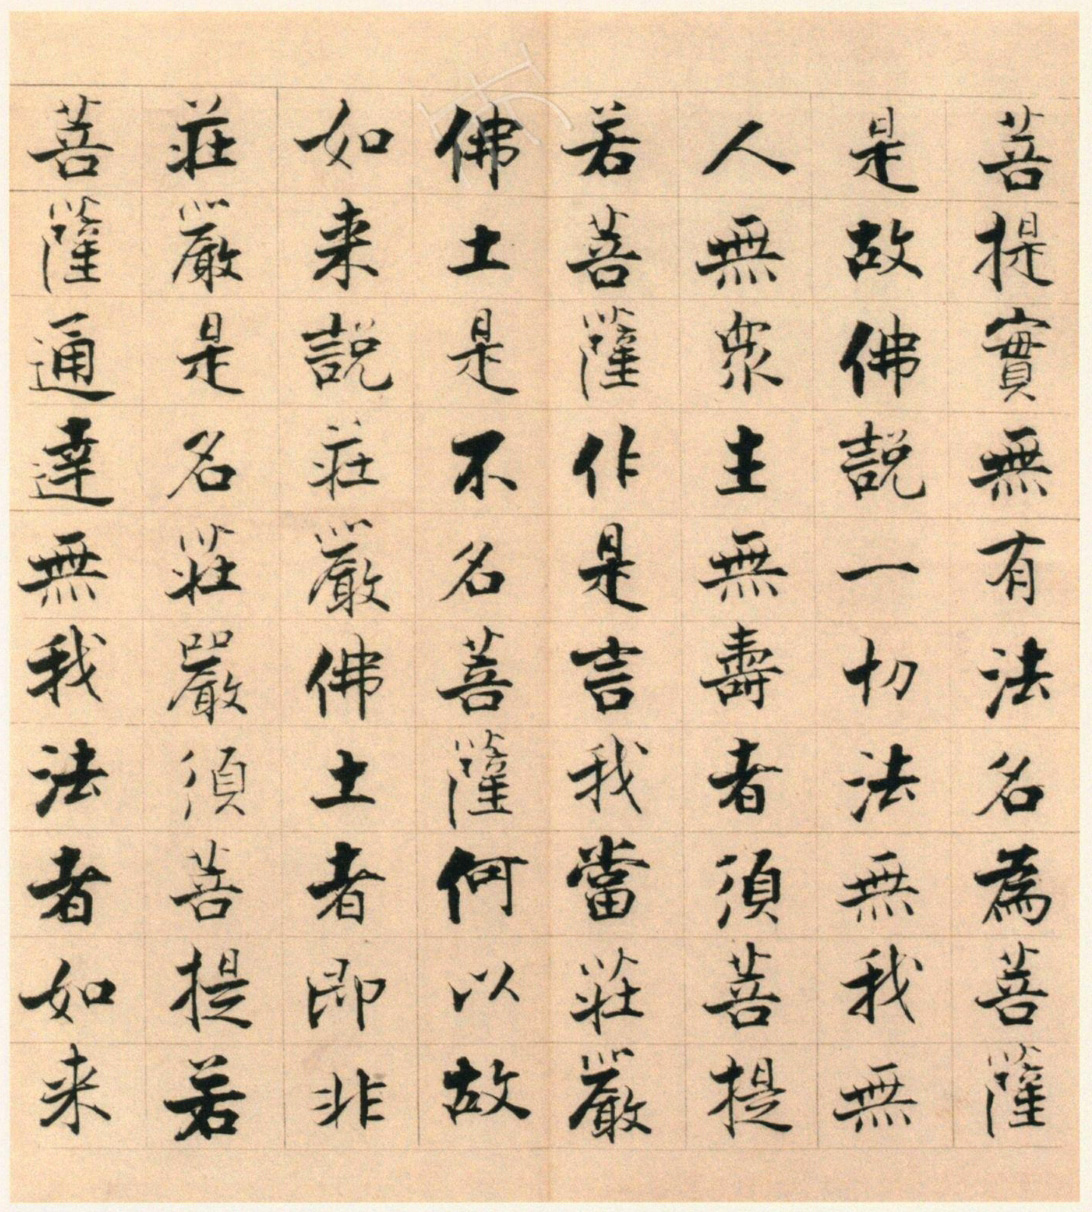 菩提實無有法名為菩薩
是故佛説一切法無我無
人無衆主無壽者須菩提
若菩薩作是言我當莊嚴
佛土是不名菩薩何以故
如来説莊嚴佛土者即非
莊嚴是名莊嚴須菩提若
菩薩通達無我法者如来